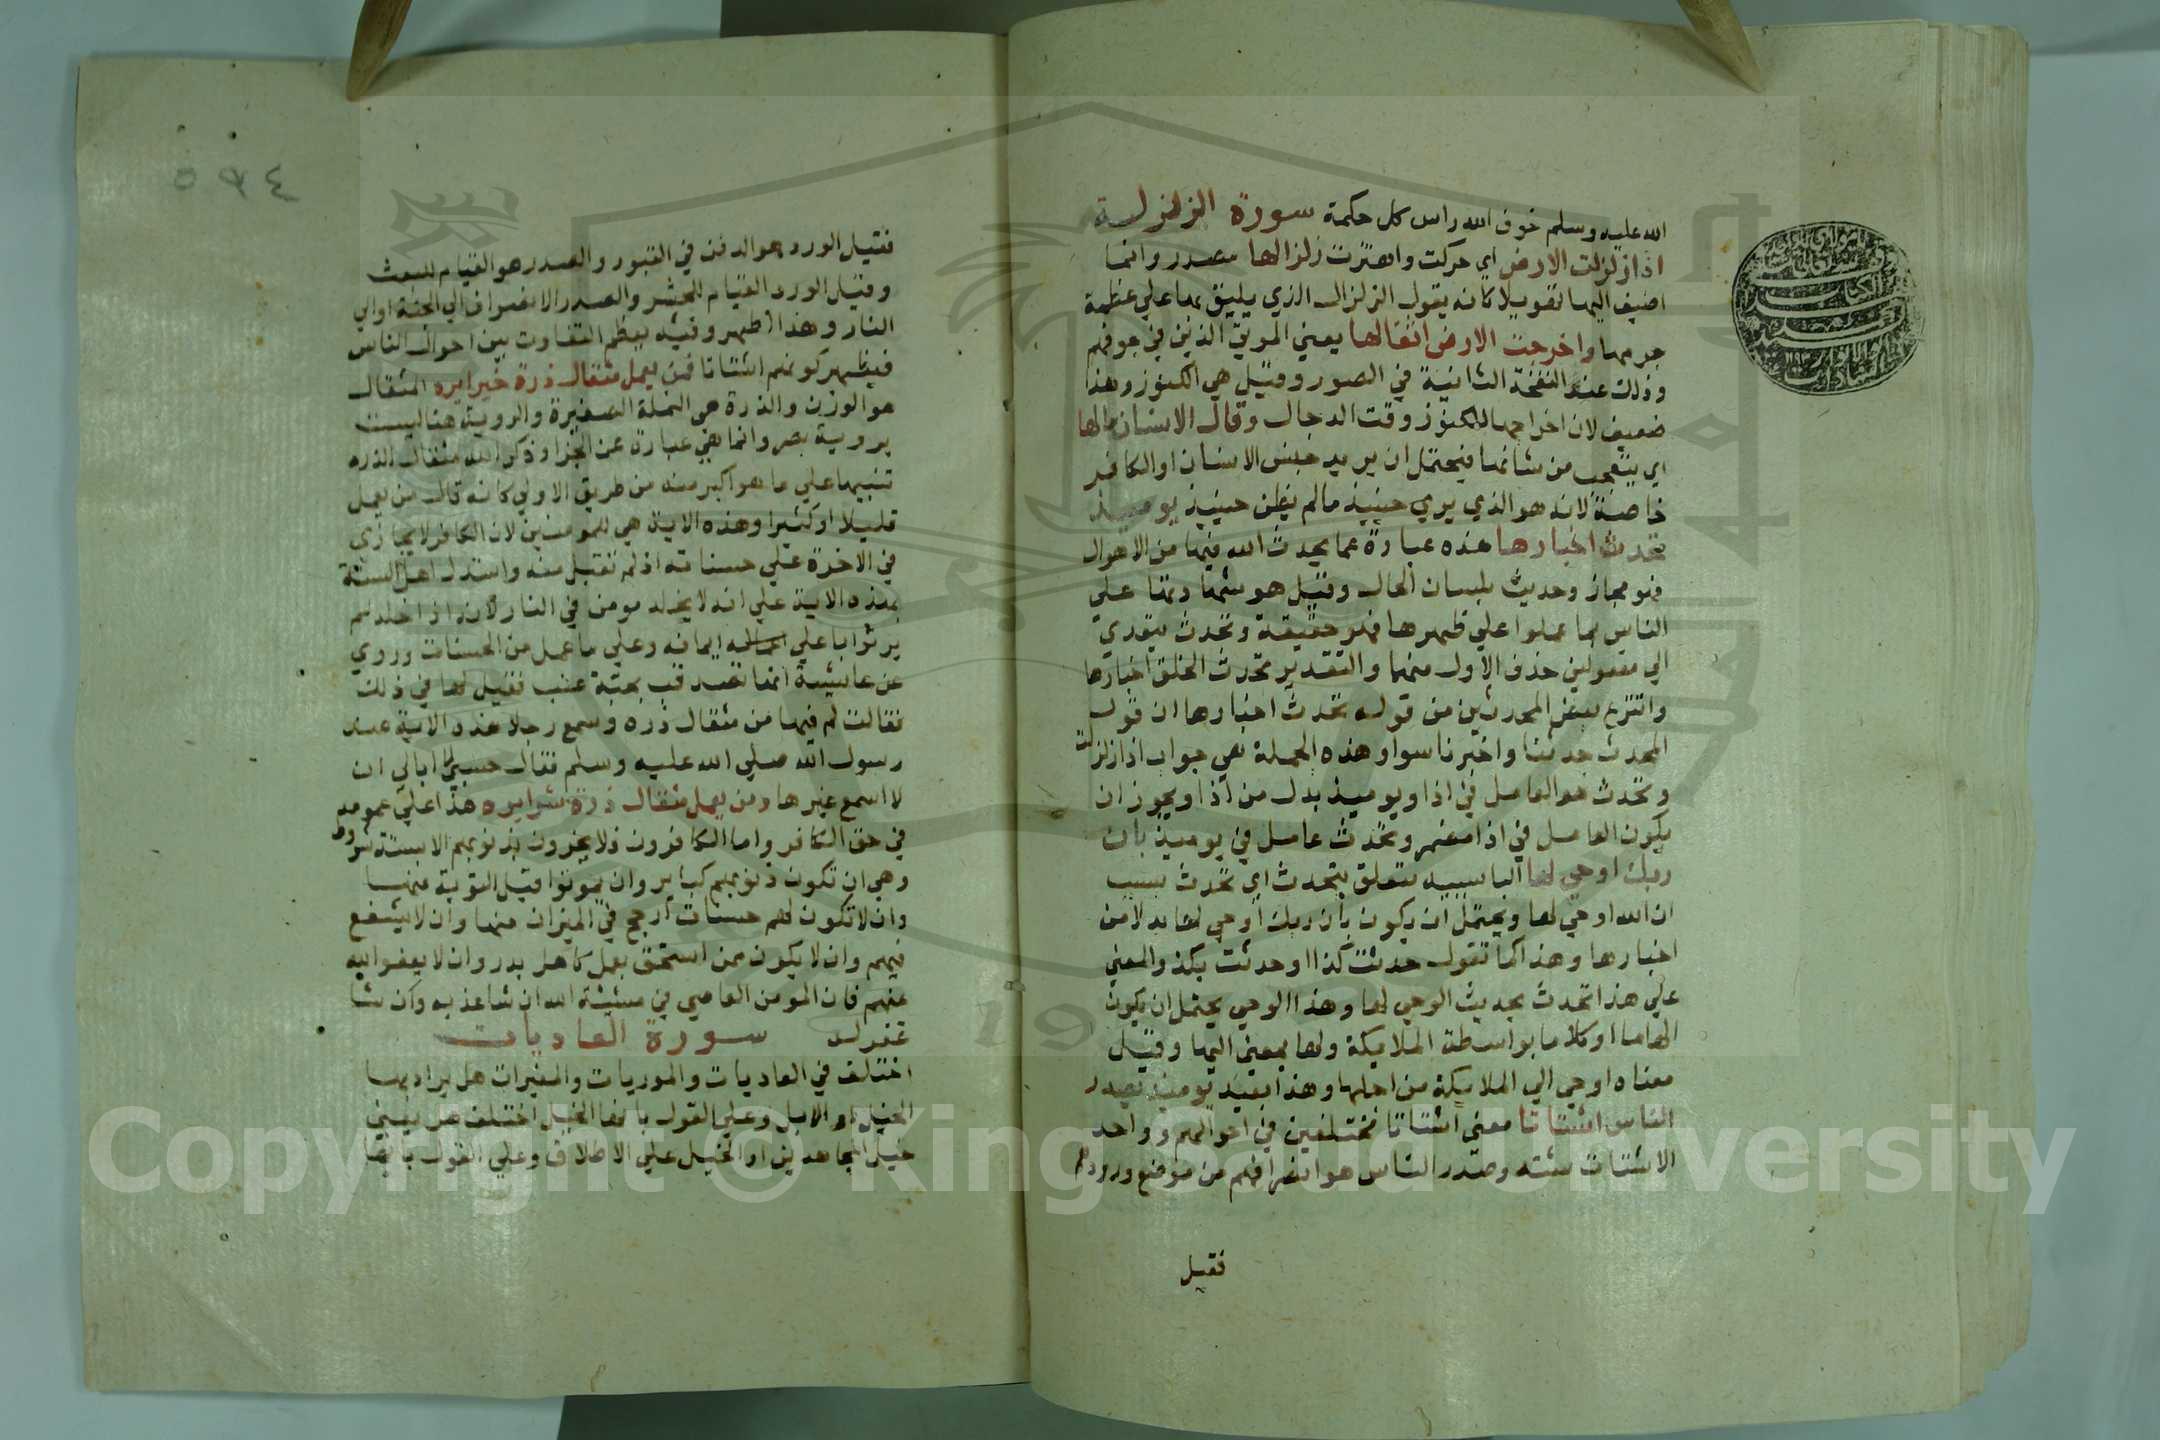 الله عليه وسلم خوف الله راس كل حكمة سورة الزلزلة
اذا زلزلت الارض اي حركت واهتزت زلزالها مصدر وانما
اضيف اليها تهويلا كانه يقول الزلزال الذي يليق بها علي عظمة
جرمها واخرجت الارض اثقالها يعني الموتي الذين في جوفهم
وذلك عند النفخة الثانية في الصور وقيل هي الكنوز وهذا
ضعيف لان اخراجها للكنوز وقت الدجال وقال الانسان مالها
اي يتعجب من شانها فيحتمل ان يريد جنس الانسان او الكافر
خاصة لانه هو الذي يري حينيذ مالم يظن حينيذ يوميذ
تحدث اخبارها هذه عبارة عما يحدث الله فيها من الاهوال
فهو مجاز وحديث بلسان الحال وقيل هو شهادتها علي
الناس بما عملوا علي ظهرها فهو حقيقة وتحدث يتعدي
الي مفعولين حذف الاول منهما والتقدير تحدث الخلق اخبارها
وانتزع بعض المحدثين من قوله تحدث اخبارها ان قول
المحدث حدثنا واخبرنا سوا وهذه الجملة هي جواب اذا زلزلت
وتحدث هو العامل في اذا ويوميذ بدل من اذا ويجوز ان
يكون العامل في اذا مضمر وتحدث عامل في يوميذ بان
ربك اوحي لها البا سببيه متعلق بتحدث اي تحدث بسبب
ان الله اوحي لها ويحتمل ان يكون بان ربك اوحي لها بدلا من
اخبارها وهذا كما تقول حدثت كذا او حدثت بكذ والمعني
علي هذا تحدث بحديث الوحي لها وهذا الوحي يحتمل ان يكون
الهاما او كلاما بواسطة الملايكة ولها بمعني اليها وقيل
معناه اوحي الي الملايكة من اجلها وهذا بعيد يوميذ يصدر
الناس اشتاتا معني اشتاتا مختلفين في احوالهم وواحد
الاشتات شته وصدر الناس هو انصرافهم من موضع ورودهم
فقيل
٥٩٤
فقيل الورد هو الدفن في القبور والصدر هو القيام للبعث
وقيل الورد القيام للحشر والصدر الانصراف الي الجنة او الي
النار وهذا اظهر وفيه يعظم التفاوت بين احوال الناس
فيظهر كونهم اشتاتا فمن يعمل مثقال ذرة خيرا يره المثقال
هو الوزن والذرة هي النملة الصغيرة والروية هنا ليست
بروية بصر وانما هي عبارة عن الجزا وذكر الله مثقال الذرة
تنبيها علي ما هو اكبر منه من طريق الاولي كانه قال من يعمل
قليلا او كثيرا وهذه الاية هي للمومنين لان الكافر لا يجازي
في الاخرة علي حسناته اذ لم تقبل منه واستدل اهل السنة
بهذه الاية علي انه لا يخلد مومن في النار لانه اذا خلد لم
ير ثوابا علي ايمانه وعلي ما عمل من الحسنات وروي
عن عايشة انها تصدقت بحبة عنب فقيل لها في ذلك
فقالت كم فيها من مثقال ذره وسمع رجلا هذه الاية عند
رسول الله صلي الله عليه وسلم فقال حسبي لا ابالي ان
لا اسمع غيرها ومن يعمل مثقال ذرة شرا يره هذا علي عمومه
في حق الكافر واما الكافرون فلا يجزون بذنوبهم الا بستة شروط
وهي ان تكون ذنوبهم كباير وان يموتوا قبل التوبة منها
وان لا تكون لهم حسنات ارجح في الميزان منها وان لا يشفع
فيهم وان لا يكون ممن استحق بعمل كاهل بدر وان لا يعفوا الله
عنهم فان المومن العاصي في مشيئة الله ان شا عذبه وان شا
غفر له سورة العاديات
اختلف في العاديات والموريات والمغيرات هل يراد بها
الخيل او الابل وعلي القول بانها الخيل اختلف هل يعني
خيل المجاهدين او الخيل علي الاطلاق وعلي القول بانها
Copyright © King Saud University